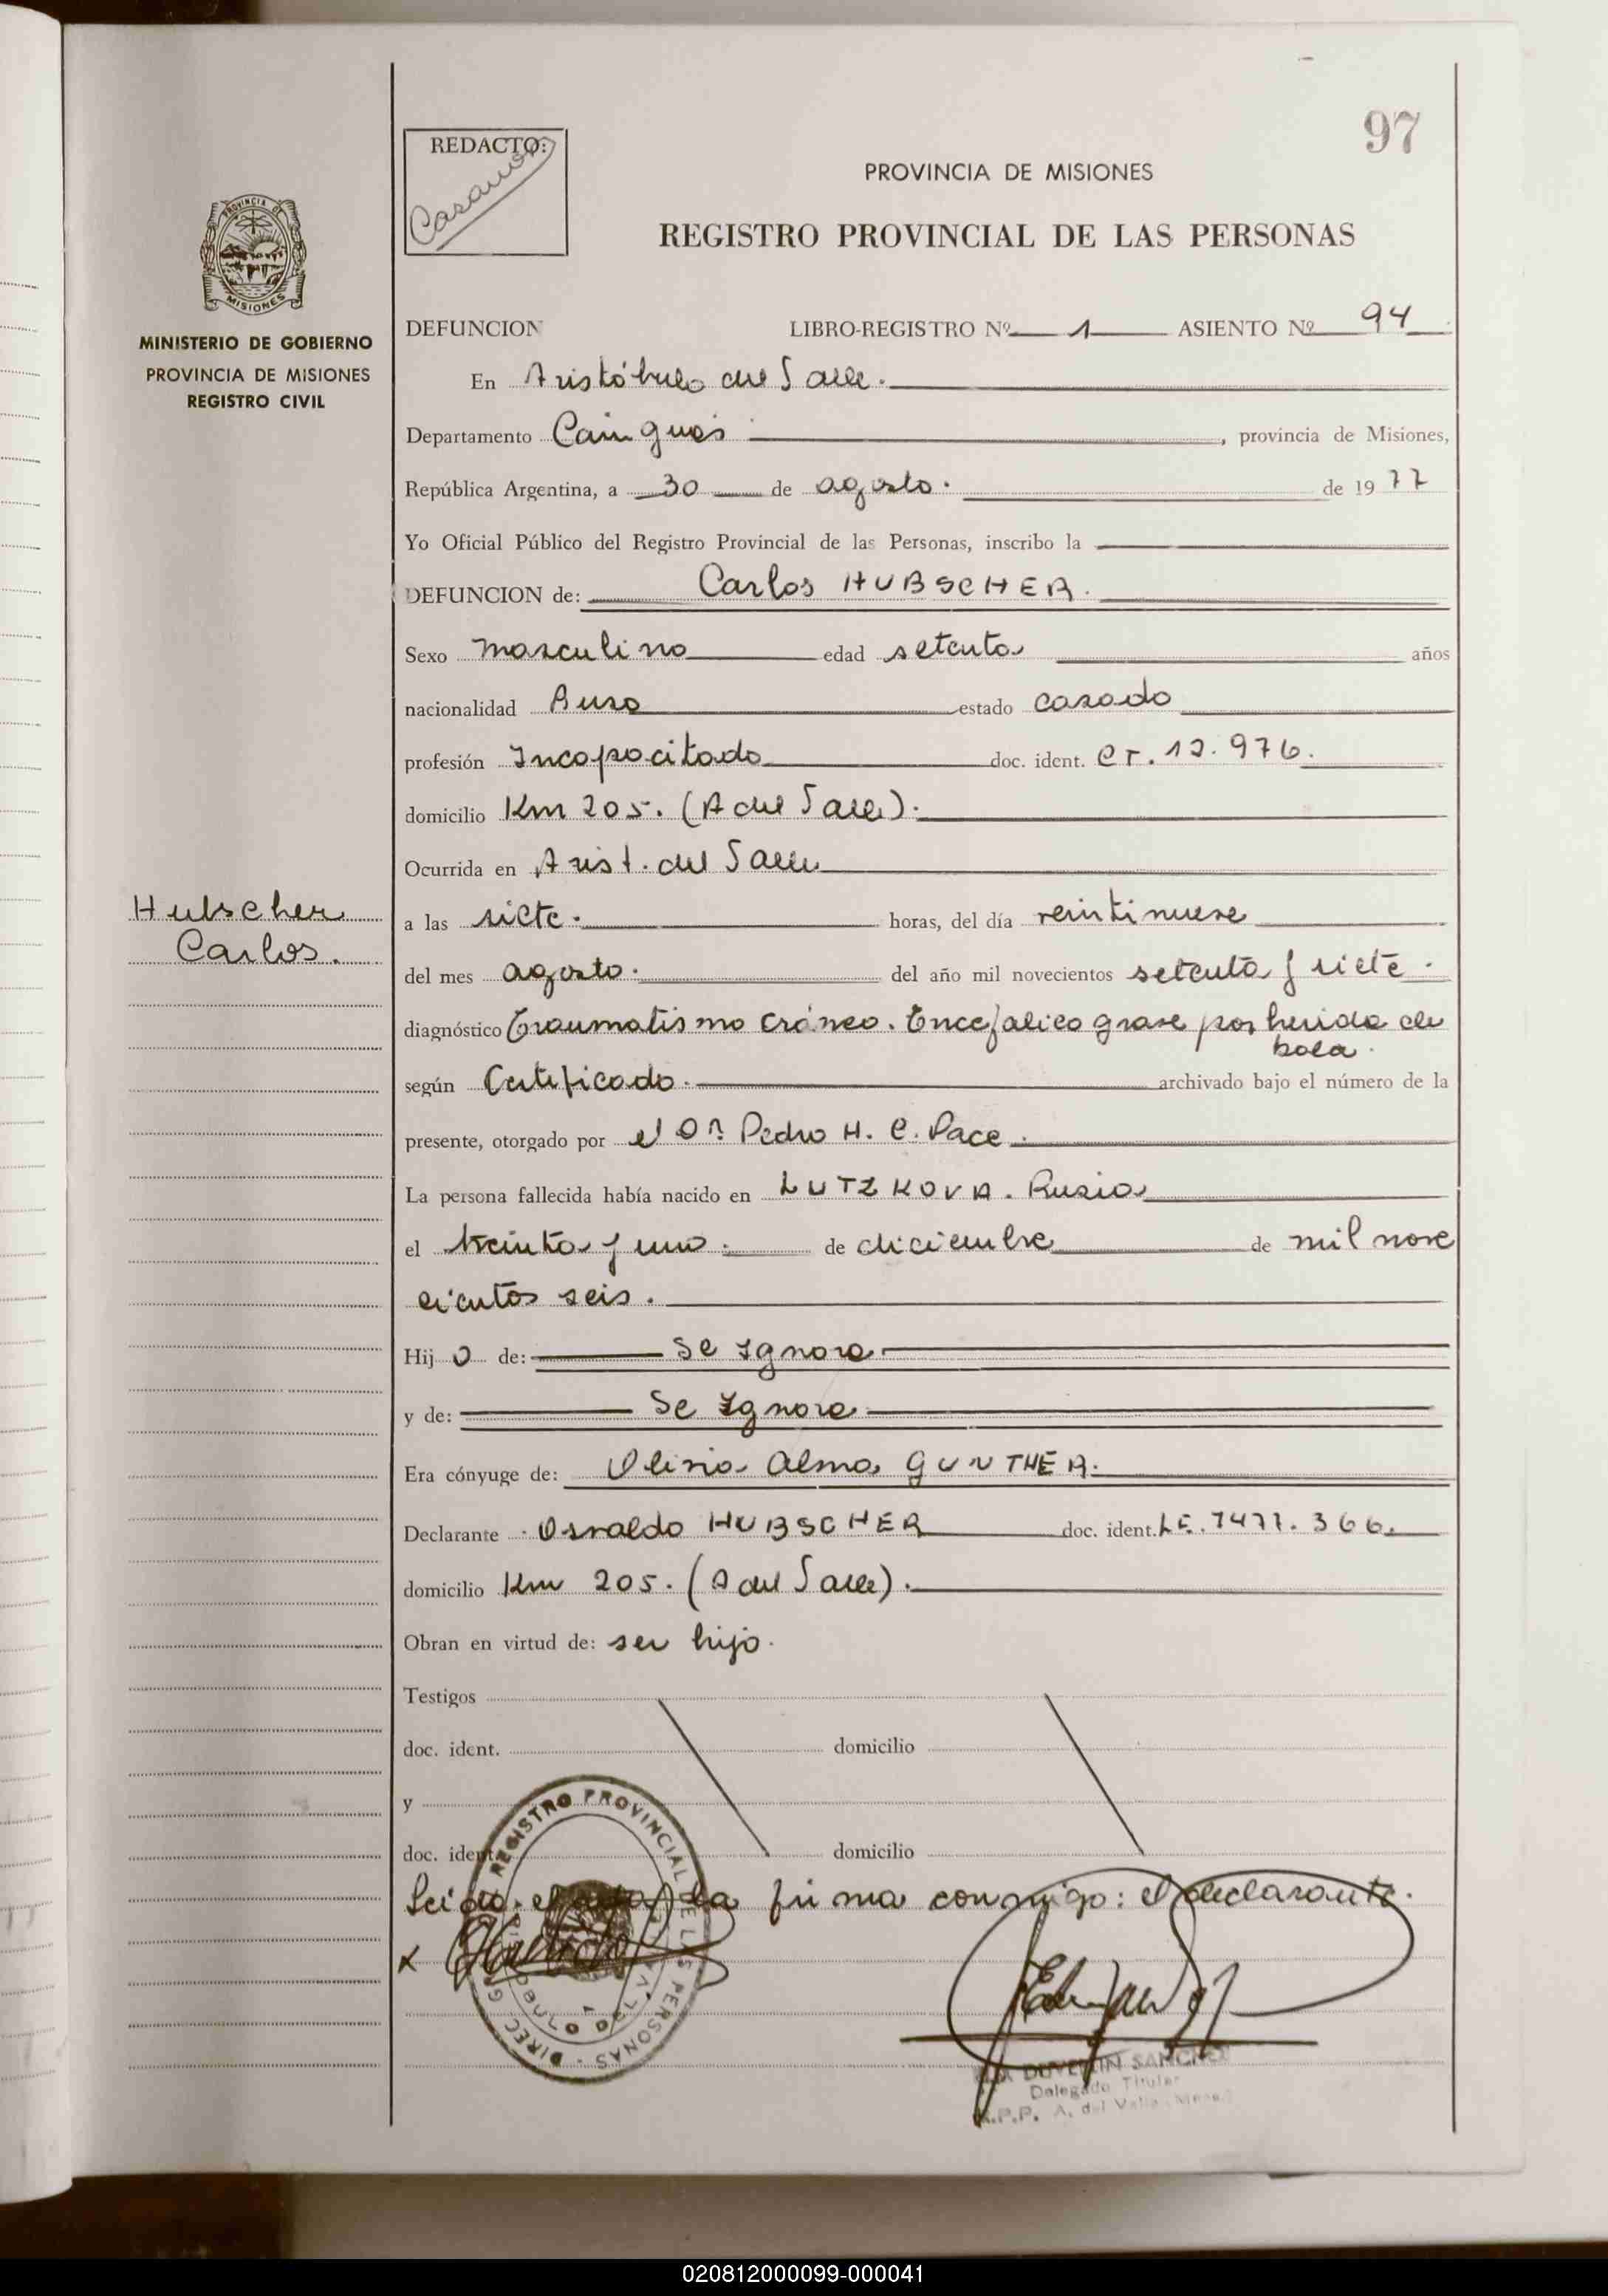 97
REDACTO:
Casanova
PROVINCIA DE MISIONES
REGISTRO PROVINCIAL DE LAS PERSONAS
PROVINCIA DE
MISIONES
MINISTERIO DE GOBIERNO
PROVINCIA DE MISIONES
REGISTRO CIVIL
DEFUNCION LIBRO-REGISTRO Nº 1 ASIENTO Nº 94
En Aristóbulo del Valle.
Departamento Cainguás, provincia de Misiones,
República Argentina, a 30 de agosto. de 1977
Yo Oficial Público del Registro Provincial de las Personas, inscribo la
DEFUNCION de: Carlos HUBSCHER.
Sexo masculino edad setenta años
nacionalidad Ruso estado casado
profesión Incapacitado doc. ident. CI. 12.976.
domicilio Km 205. (A del Valle).
Ocurrida en Arist. del Valle
Hubscher
Carlos.
a las siete. horas, del día veintinueve
del mes agosto. del año mil novecientos setenta y siete.
diagnóstico Traumatismo cráneo. Encefalico grave por herida de
bala.
según Certificado. archivado bajo el número de la
presente, otorgado por el Dr. Pedro H. C. Pace.
La persona fallecida había nacido en LUTZKOVA. Rusia
el treinta y uno. de diciembre de mil nove
cientos seis.
Hijo de: Se Ignora
y de: Se Ignora
Era cónyuge de: Olina Alma GUNTHER.
Declarante Osvaldo HUBSCHER doc. ident. LE. 7477.366.
domicilio Km 205. (A del Valle).
Obran en virtud de: ser hijo.
Testigos
doc. ident. domicilio
y
doc. ident. domicilio
Leida el acta, la firma conmigo: el declarante.
x
DIREC. G REGISTRO PROVINCIAL DE LAS PERSONAS
DUVERLIN SANCHEZ
Delegado Titular
R.P.P. A. del Valle - Mnes.
020812000099-000041